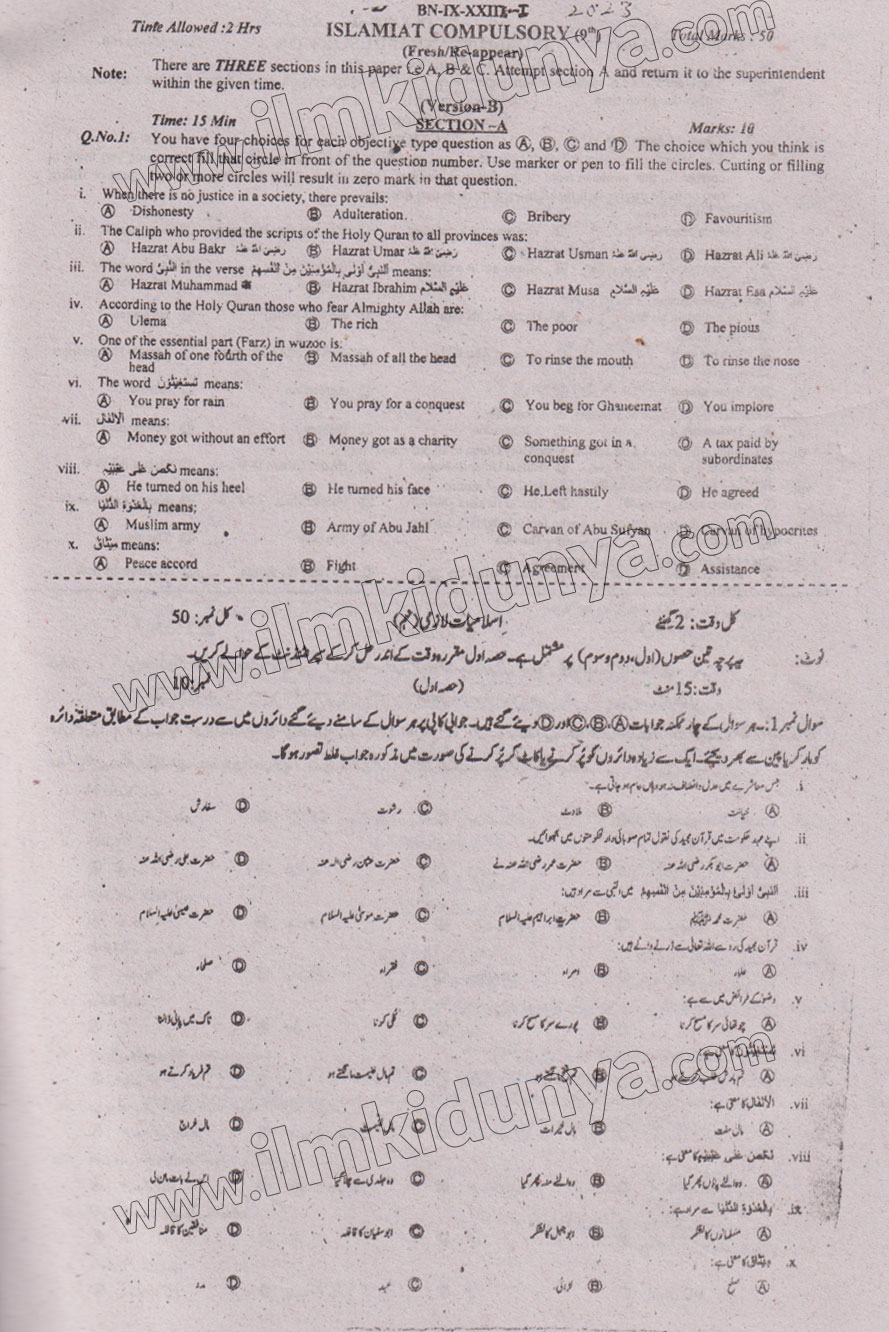 BN-IX-XXIII-I 2023
Time Allowed :2 Hrs ISLAMIAT COMPULSORY (9th) Total Marks : 50
(Fresh/Re-appear)
Note: There are THREE sections in this paper i.e A, B & C. Attempt section A and return it to the superintendent
within the given time.
(Version-B)
Time: 15 Min SECTION –A Marks: 10
Q.No.1: You have four choices for each objective type question as Ⓐ, Ⓑ, Ⓒ and Ⓓ The choice which you think is
correct fill that circle in front of the question number. Use marker or pen to fill the circles. Cutting or filling
two or more circles will result in zero mark in that question.
i. When there is no justice in a society, there prevails:
Ⓐ Dishonesty Ⓑ Adulteration Ⓒ Bribery Ⓓ Favouritism
ii. The Caliph who provided the scripts of the Holy Quran to all provinces was:
Ⓐ Hazrat Abu Bakr رضی اللہ عنہ Ⓑ Hazrat Umar رضی اللہ عنہ Ⓒ Hazrat Usman رضی اللہ عنہ Ⓓ Hazrat Ali رضی اللہ عنہ
iii. The word النبی in the verse اَلنَّبِیُّ اَوْلٰی بِالْمُؤْمِنِیْنَ مِنْ اَنْفُسِهِمْ means:
Ⓐ Hazrat Muhammad ﷺ Ⓑ Hazrat Ibrahim علیہ السلام Ⓒ Hazrat Musa علیہ السلام Ⓓ Hazrat Esa علیہ السلام
iv. According to the Holy Quran those who fear Almighty Allah are:
Ⓐ Ulema Ⓑ The rich Ⓒ The poor Ⓓ The pious
v. One of the essential part (Farz) in wuzoo is:
Ⓐ Massah of one fourth of the head Ⓑ Massah of all the head Ⓒ To rinse the mouth Ⓓ To rinse the nose
vi. The word تستغیثون means:
Ⓐ You pray for rain Ⓑ You pray for a conquest Ⓒ You beg for Ghaneemat Ⓓ You implore
vii. الانفال means:
Ⓐ Money got without an effort Ⓑ Money got as a charity Ⓒ Something got in a conquest Ⓓ A tax paid by subordinates
viii. نکص علی عقبیہ means:
Ⓐ He turned on his heel Ⓑ He turned his face Ⓒ He Left hastily Ⓓ He agreed
ix. بِالْعُدْوَةِ الدُّنْیَا means;
Ⓐ Muslim army Ⓑ Army of Abu Jahl Ⓒ Carvan of Abu Sufyan Ⓓ Carvan of hypocrites
x. میثاق means:
Ⓐ Peace accord Ⓑ Fight Ⓒ Agreement Ⓓ Assistance
کل وقت: 2 گھنٹے اسلامیات لازمی (نہم) کل نمبر: 50
نوٹ: یہ پرچہ تین حصوں (اول، دوم و سوم) پر مشتمل ہے۔ حصہ اول مقررہ وقت کے اندر حل کر کے سپرنٹنڈنٹ کے حوالے کریں۔
وقت: 15 منٹ (حصہ اول) نمبر: 10
سوال نمبر 1:۔ ہر سوال کے چار ممکنہ جوابات Ⓐ، Ⓑ، Ⓒ اور Ⓓ دیئے گئے ہیں۔ جوابی کاپی پر ہر سوال کے سامنے دیئے گئے دائروں میں سے درست جواب کے مطابق متعلقہ دائرہ
کو مارکر یا پین سے بھر دیجئے۔ ایک سے زیادہ دائروں کو پُر کرنے یا کاٹ کر پُر کرنے کی صورت میں مذکورہ جواب غلط تصور ہوگا۔
i. جس معاشرے میں عدل و انصاف نہ ہو وہاں عام ہو جاتی ہے۔
Ⓐ خیانت Ⓑ ملاوٹ Ⓒ رشوت Ⓓ سفارش
ii. اپنے عہد حکومت میں قرآن مجید کی نقول تمام صوبائی دار لحکومتوں میں بھجوائیں۔
Ⓐ حضرت ابوبکر رضی اللہ عنہ Ⓑ حضرت عمر رضی اللہ عنہ نے Ⓒ حضرت عثمان رضی اللہ عنہ Ⓓ حضرت علی رضی اللہ عنہ
iii. اَلنَّبِیُّ اَوْلٰی بِالْمُؤْمِنِیْنَ مِنْ اَنْفُسِهِمْ میں النبی سے مراد ہیں:
Ⓐ حضرت محمد ﷺ Ⓑ حضرت ابراہیم علیہ السلام Ⓒ حضرت موسیٰ علیہ السلام Ⓓ حضرت عیسیٰ علیہ السلام
iv. قرآن مجید کی رو سے اللہ تعالیٰ سے ڈرنے والے ہیں:
Ⓐ علماء Ⓑ امراء Ⓒ فقراء Ⓓ صلحاء
v. وضو کے فرائض میں سے ہے:
Ⓐ چوتھائی سر کا مسح کرنا Ⓑ پورے سر کا مسح کرنا Ⓒ کلی کرنا Ⓓ ناک میں پانی ڈالنا
vi.
Ⓐ Ⓑ Ⓒ تم مال غنیمت مانگتے ہو Ⓓ تم فریاد کرتے ہو
vii. الانفال کا معنی ہے:
Ⓐ مال مفت Ⓑ مال خیرات Ⓒ مال غنیمت Ⓓ مال خراج
viii. نکص علی عقبیہ کا معنی ہے:
Ⓐ وہ الٹے پاؤں پھر گیا Ⓑ وہ الٹے منہ پھر گیا Ⓒ وہ جلدی سے چلا گیا Ⓓ اس نے بات مان لی
ix. بالعدوۃ الدنیا سے مراد ہے:
Ⓐ مسلمانوں کا لشکر Ⓑ ابوجہل کا لشکر Ⓒ ابوسفیان کا قافلہ Ⓓ منافقین کا قافلہ
x. میثاق کا معنی ہے:
Ⓐ صلح Ⓑ لڑائی Ⓒ عہد Ⓓ مدد
www.ilmkidunya.com
www.ilmkidunya.com
www.ilmkidunya.com
www.ilmkidunya.com